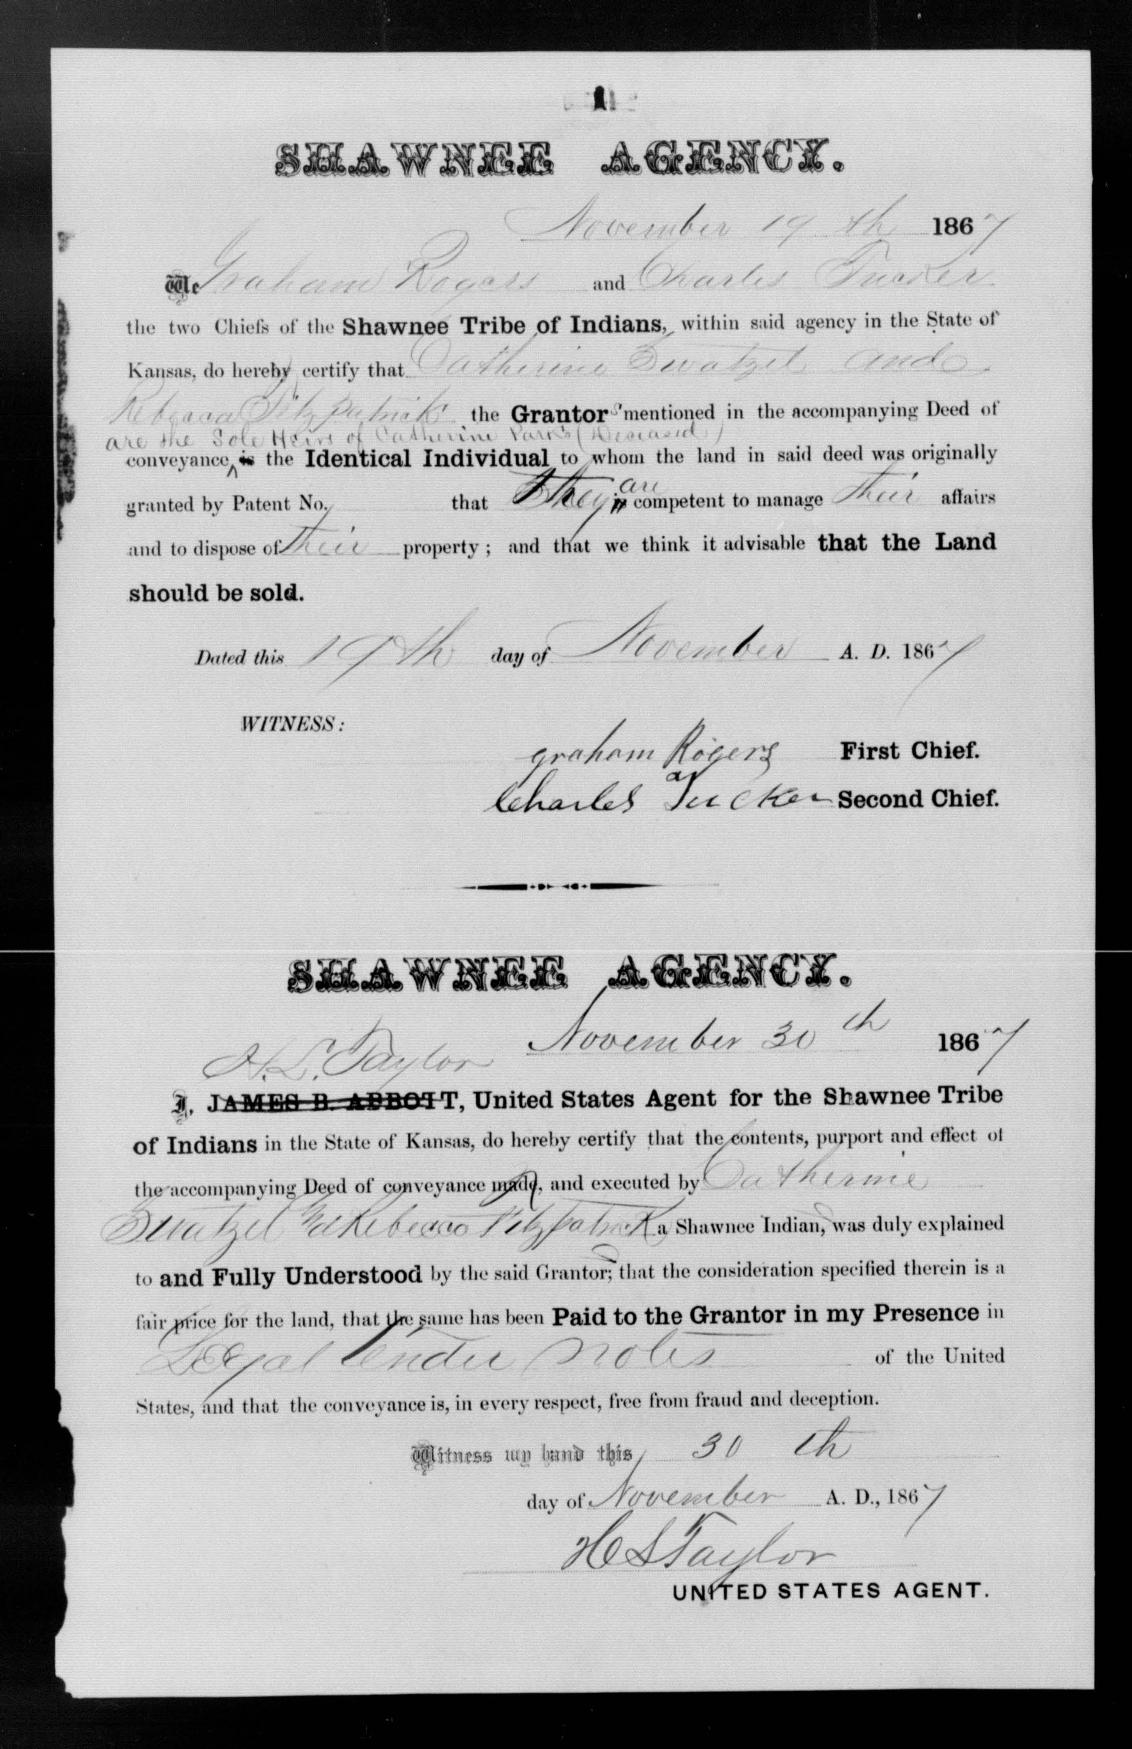 1
SHAWNEE AGENCY.
November 19th 1867
We Graham Rogers and Charles Tucker
the two Chiefs of the Shawnee Tribe of Indians, within said agency in the State of
Kansas, do hereby certify that Catherine Swatzel and
Rebecca Fitzpatrick the Grantors mentioned in the accompanying Deed of
are the Sole Heirs of Catherine Parks (Deceased)
conveyance, is the Identical Individual to whom the land in said deed was originally
are
granted by Patent No. that they is competent to manage their affairs
and to dispose of their property; and that we think it advisable that the Land
should be sold.
Dated this 19th day of November A. D. 1867
WITNESS:
graham Rogers First Chief.
Charles Tucker Second Chief.
SHAWNEE AGENCY.
November 30th 1867
H. L. Taylor
I, JAMES B. ABBOTT, United States Agent for the Shawnee Tribe
of Indians in the State of Kansas, do hereby certify that the contents, purport and effect of
the accompanying Deed of conveyance made, and executed by Catherine
Swatzel and Rebecca Fitzpatrick a Shawnee Indian, was duly explained
to and Fully Understood by the said Grantor; that the consideration specified therein is a
fair price for the land, that the same has been Paid to the Grantor in my Presence in
Legal tender notes of the United
States, and that the conveyance is, in every respect, free from fraud and deception.
Witness my hand this 30th
day of November A. D., 1867
H L Taylor
UNITED STATES AGENT.